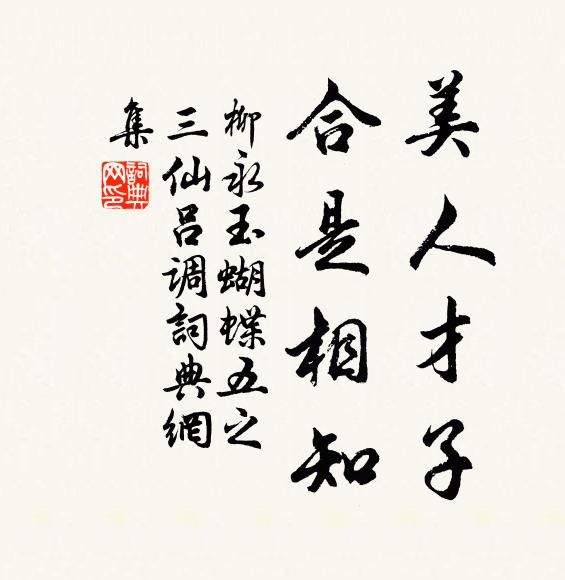 美人才子
合是相知
柳永玉蝴蝶五之
三仙吕調詞典網
集
詞典
网印